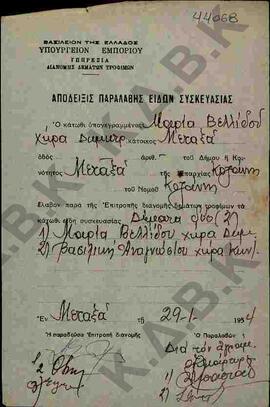 44068
ΒΑΣΙΛΕΙΟΝ ΤΗΣ ΕΛΛΑΔΟΣ
ΥΠΟΥΡΓΕΙΟΝ ΕΜΠΟΡΙΟΥ
ΥΠΗΡΕΣΙΑ
ΔΙΑΝΟΜΗΣ ΔΕΜΑΤΩΝ ΤΡΟΦΙΜΩΝ
ΑΠΟΔΕΙΞΙΣ ΠΑΡΑΛΑΒΗΣ ΕΙΔΩΝ ΣΥΣΚΕΥΑΣΙΑΣ
Ὁ κάτωθι ὑπογεγραμμένος Μαρία Βελλίδου
χήρα Δημητρ. κάτοικος Μεταξᾶ
ὁδὸς ἀριθ. τοῦ Δήμου ἢ Κοι-
νότητος Μεταξᾶ τῆς Ἐπαρχίας Κοζάνης
τοῦ Νομοῦ Κοζάνης
Ἔλαβον παρὰ τῆς Ἐπιτροπῆς διανομῆς δεμάτων τροφίμων τὰ
κάτωθι εἴδη συσκευασίας Δέματα δύο (2)
1) Μαρία Βελλίδου χήρα Δημ.
2) Βασιλικὴ Ἀναγνώστου χήρα Κων.
Ἐν Μεταξᾶ τῇ 29-1- 1954
Ἡ παραδοῦσα Ἐπιτροπὴ διανομῆς Ὁ Παραλαβὼν
Διὰ τὸν ἀγράμ.
1)
2)
Κ.Β.Α.Κ